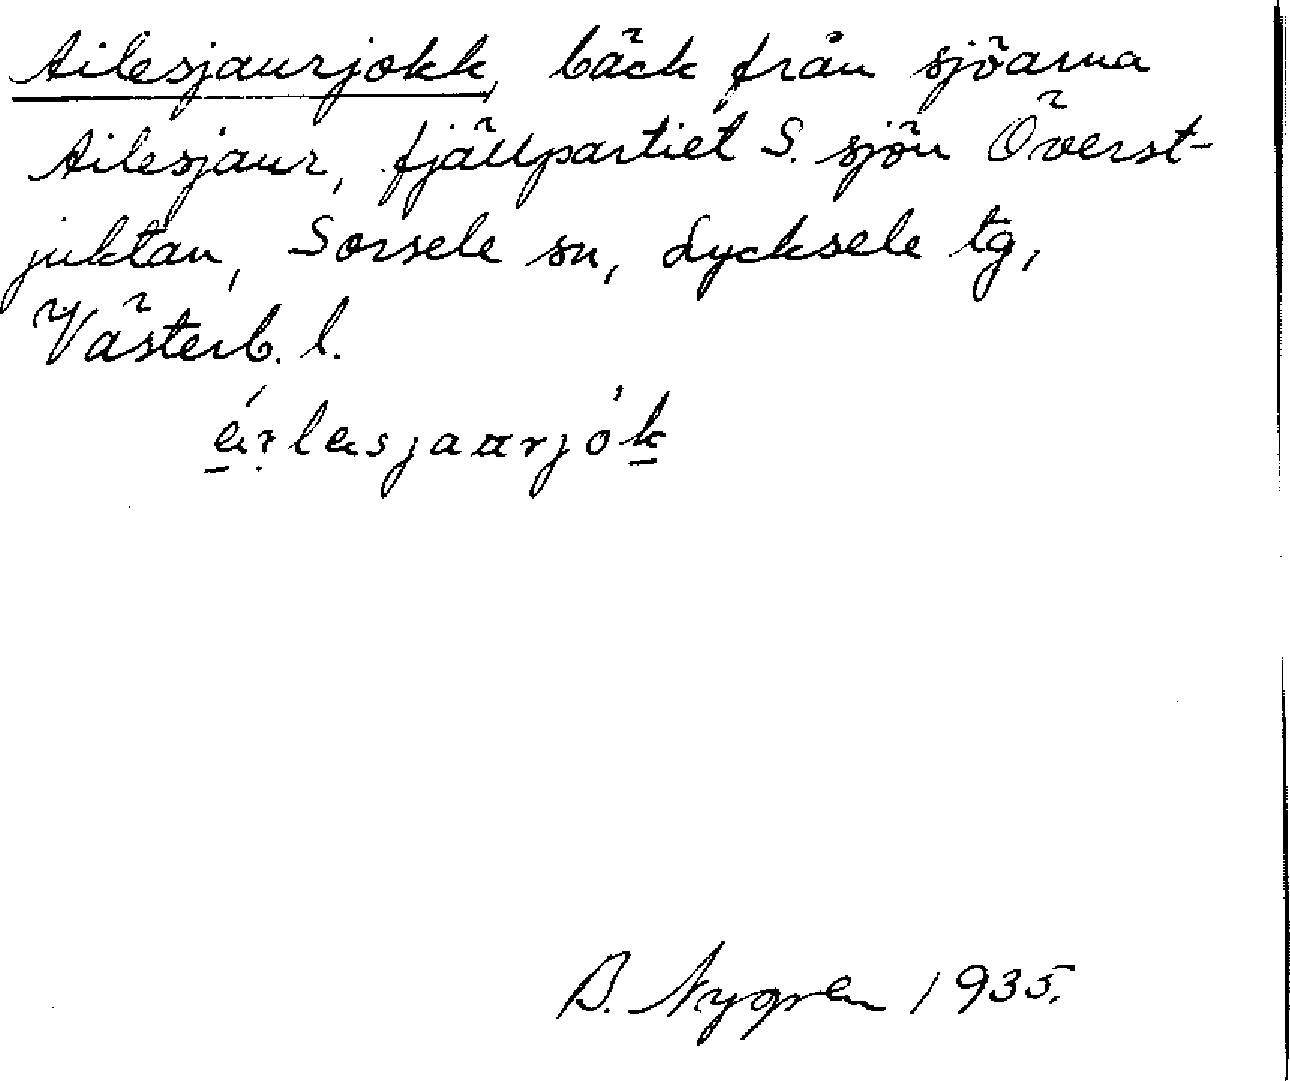 Ailesjaurjokk, bäck från sjöarna
Ailesjaur, fjällpartiet S. sjön Överst-
juktan, Sorsele sn, Lycksele tg,
Västerb. l.
B. Nygren 1935.